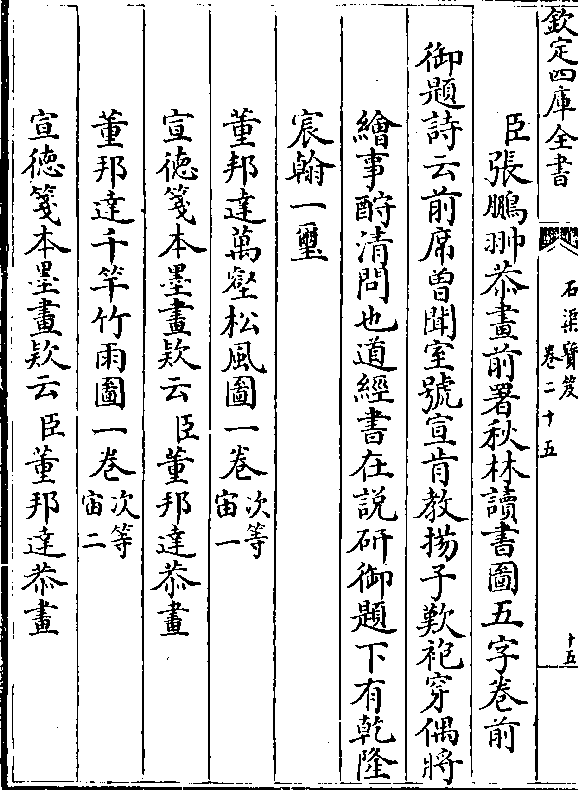 欽定四庫全書
石渠寶笈
卷二十五
十五
臣張鵬翀恭畫前署秋林讀書圖五字卷前
御題詩云前席曾聞室號宣肯教揚子歎袍穿偶將
繪事酧清問也道經書在説研御題下有乾隆
宸翰一璽
董邦達萬壑松風圖一卷次等宙一
宣德箋本墨畫欵云臣董邦達恭畫
董邦達千竿竹雨圖一卷次等宙二
宣德箋本墨畫欵云臣董邦達恭畫